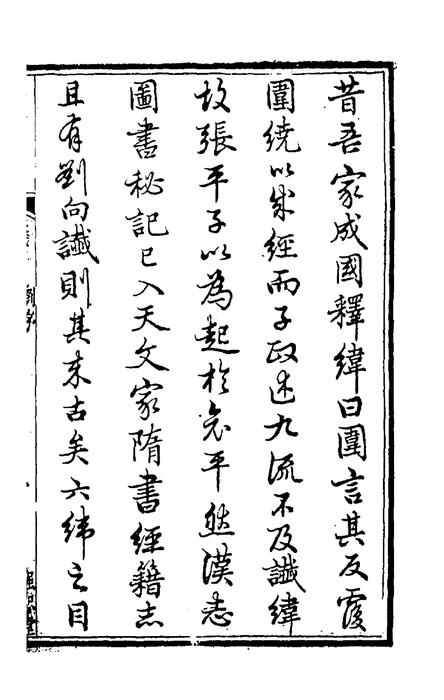 昔吾家成國釋緯曰圍言其反覆
圍繞以成經而子政述九流不及讖緯
故張平子以為起於哀平然漢志
圖書秘記已入天文家隋書經籍志
且有劉向讖則其来古矣六緯之目